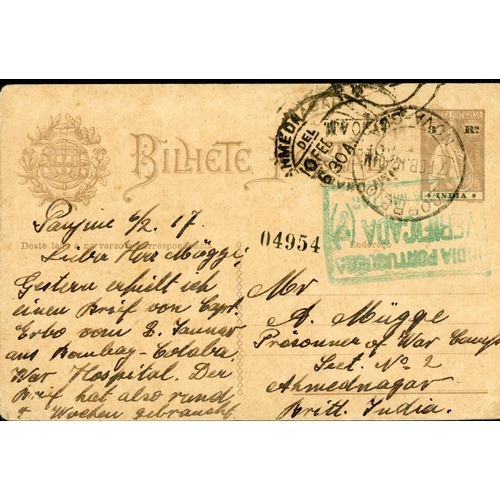 BILHETE
Rs
INDIA
Panjim 6/2. 17.
Deste lado e no verso a correspondencia
04954
Endereço
Lieber Herr Mügge,
Gestern erhielt ich
einen Brief von Capt.
vom 2. Januar
aus Bombay-Colaba
War Hospital. Der
Brief hat also rund
4 Wochen gebraucht
Mr
A. Mügge
Presonner of War Camp
Sect. No 2
Ahmednagar
Britt. India.
INDIA PORTUGUESA
VERIFICADA
(2)
DEL
FEB
6 30 A
NOVA-GOA